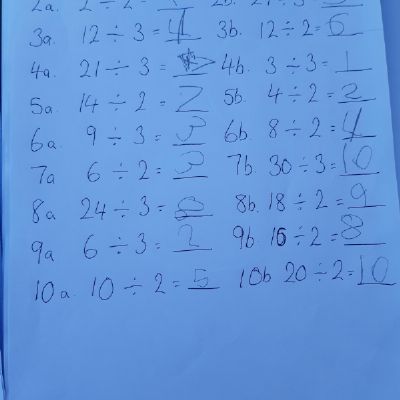 3a. 12 ÷ 3 = 4 3b. 12 ÷ 2 = 6
4a. 21 ÷ 3 = 4b. 3 ÷ 3 = 1
5a. 14 ÷ 2 = 7 5b. 4 ÷ 2 = 2
6a. 9 ÷ 3 = 3 6b. 8 ÷ 2 = 4
7a 6 ÷ 2 = 3 7b. 30 ÷ 3 = 10
8a 24 ÷ 3 = 8 8b. 18 ÷ 2 = 9
9a 6 ÷ 3 = 2 9b. 16 ÷ 2 = 8
10a. 10 ÷ 2 = 5 10b 20 ÷ 2 = 10